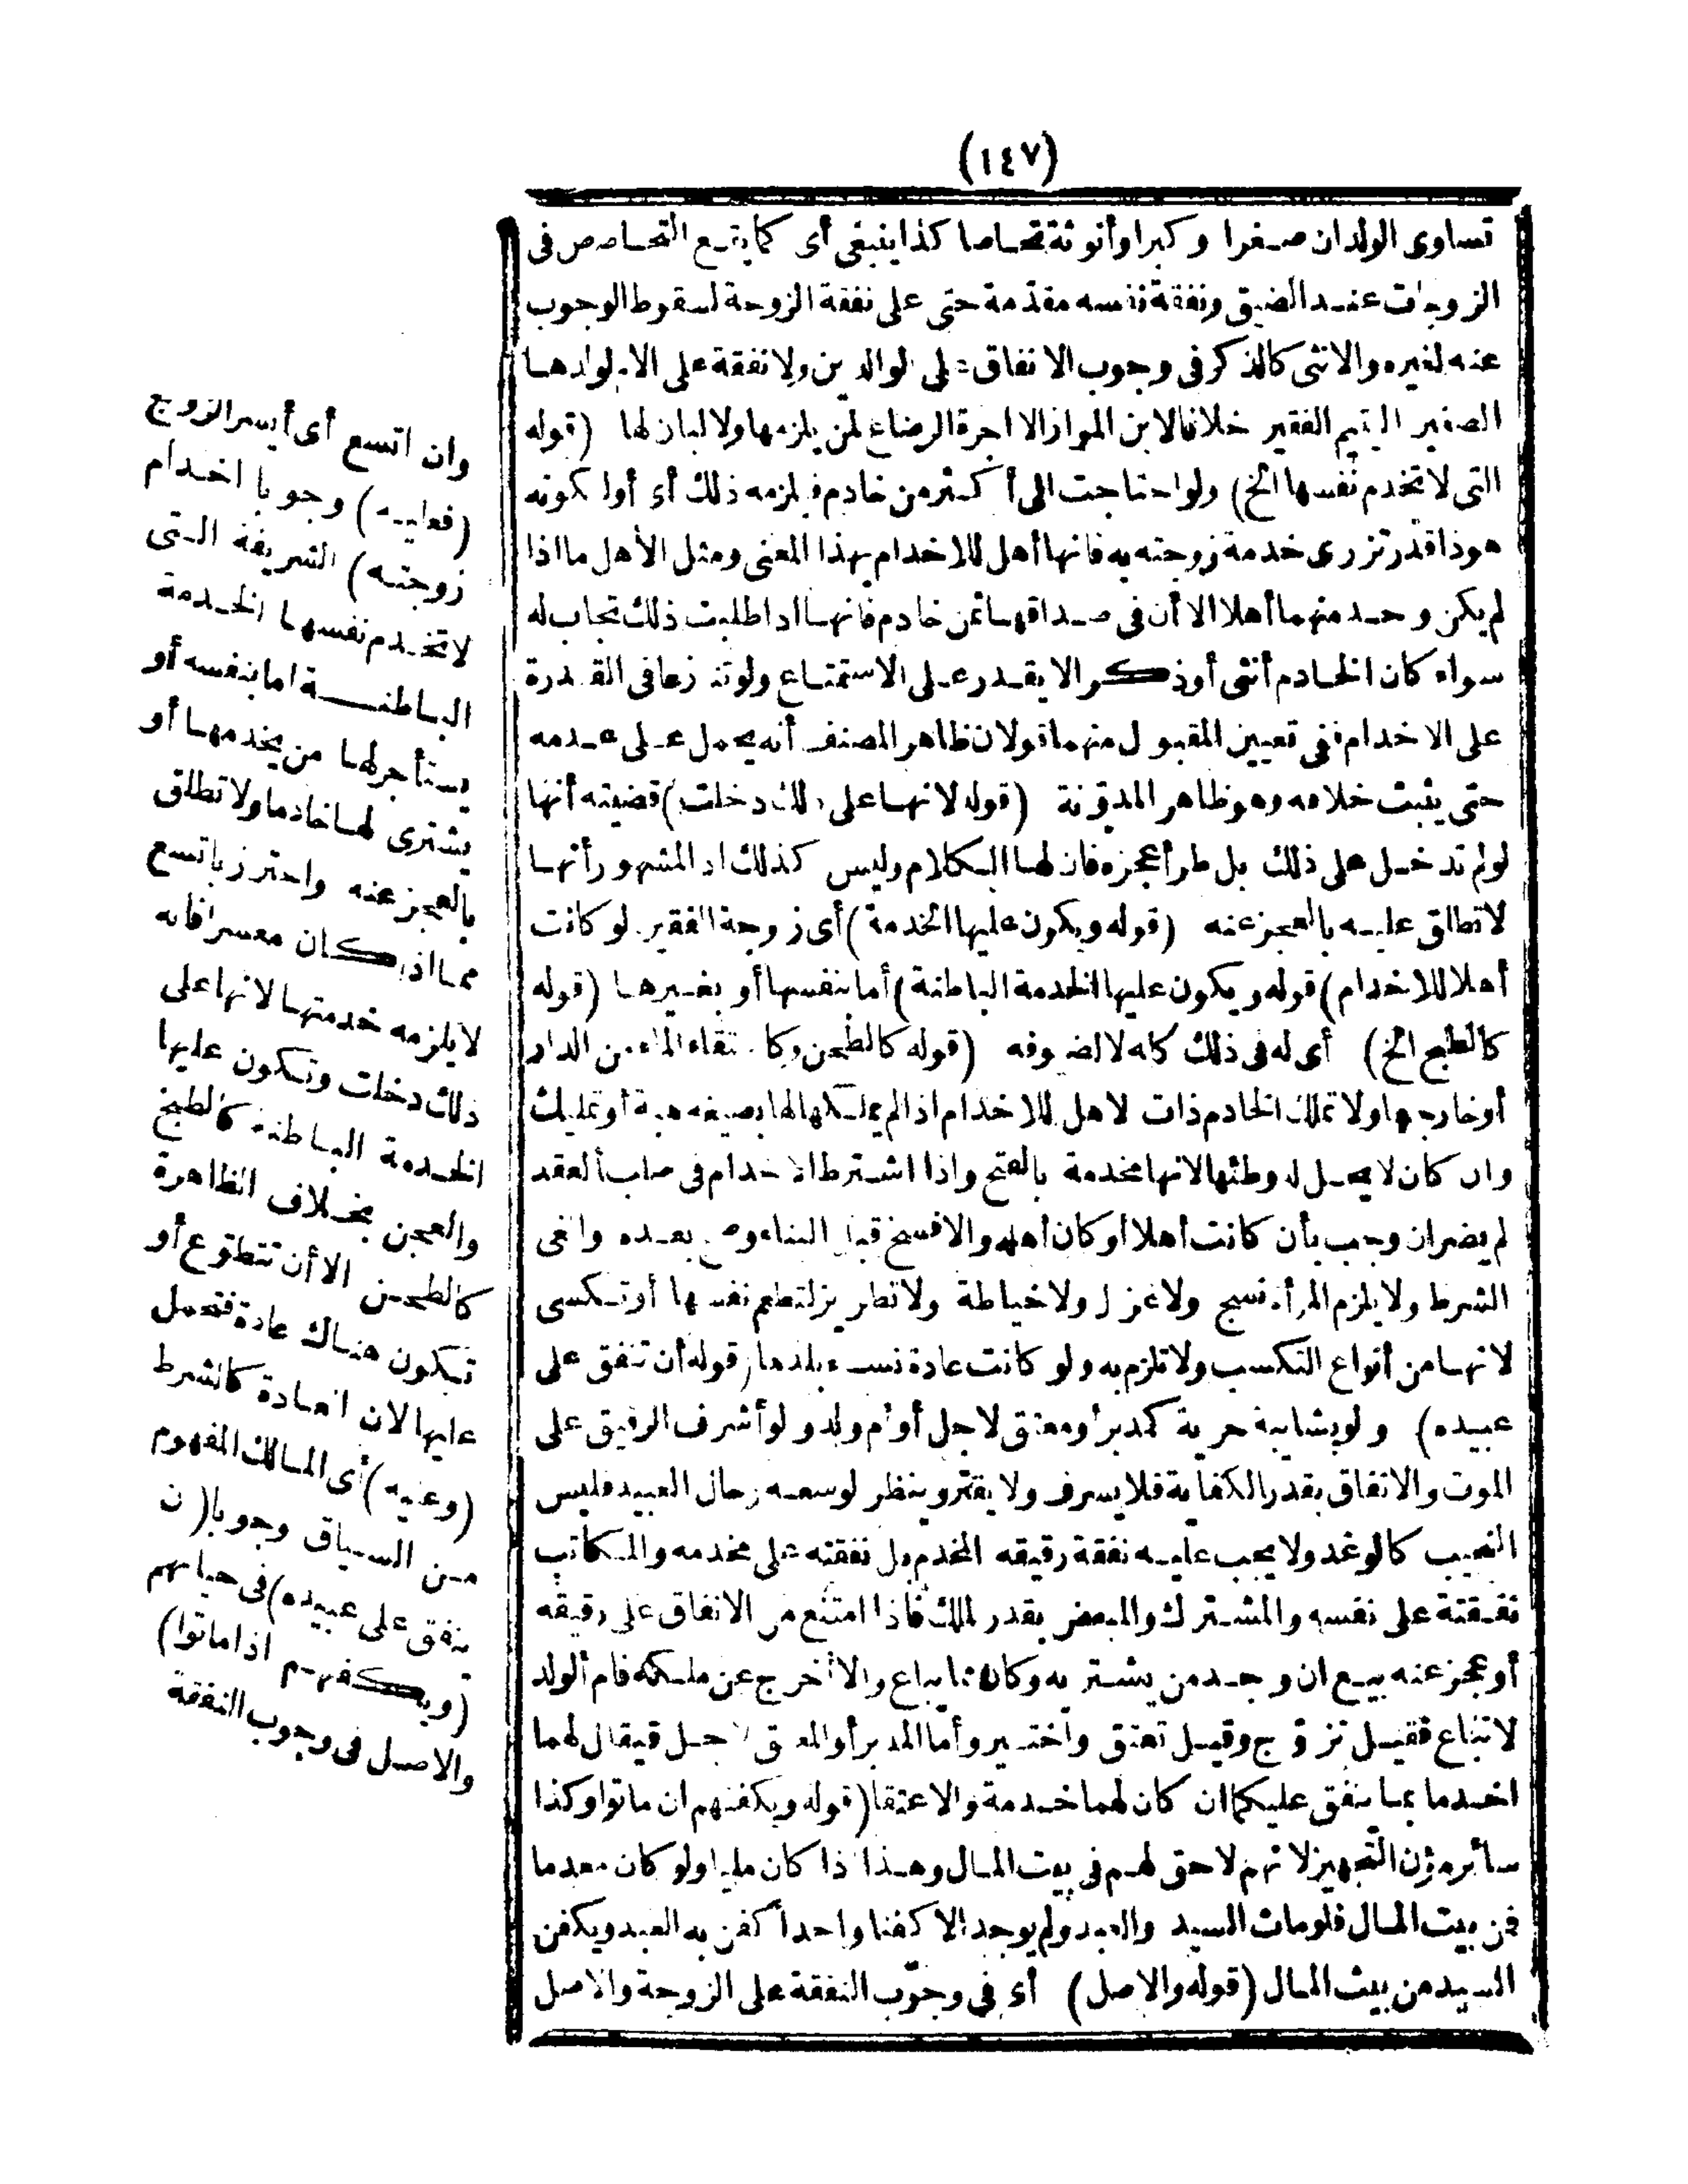 (١٤٧)
تساوى الولدان صغرا وكبرا وأنوثة تحاصا كذا ينبغى أى كما يقع التحاصص فى
الزوجات عند الضيق ونفقة نفسه مقدمة حتى على نفقة الزوجة لسقوط الوجوب
عنه لغيره والانثى كالذكر فى وجوب الانفاق على الوالدين ولا نفقة على الام لولدها
الصغير اليتيم الفقير خلافا لابن المواز الا اجرة الرضاع لمن يلزمها ولا لبان لها (قوله
التى لا تخدم نفسها الخ) ولو احتاجت الى أكثر من خادم فيلزمه ذلك أى أو لكونه
هو ذا قدر تزرى خدمة زوجته به فانها أهل للاخدام بهذا المعنى ومثل الأهل ما اذا
لم يكن وحد منهما أهلا الا أن فى صداقها ثمن خادم فانها اذا طلبت ذلك تجاب له
سواء كان الخادم أنثى أو ذكرا لا يقدر على الاستمتاع ولو تنازعا فى القدرة
على الاخدام ففى تعيين المقبول منهما قولان ظاهر المصنف أنه يحمل على عدمه
حتى يثبت خلافه وهو ظاهر المدوّنة (قوله لانها على ذلك دخلت) قضيته أنها
لو لم تدخل على ذلك بل طرأ عجزه فان لها الكلام وليس كذلك اذ المشهور أنها
لا تطلق عليه بالعجز عنه (قوله ويكون عليها الخدمة) أى زوجة الفقير لو كانت
أهلا للاخدام) قوله ويكون عليها الخدمة الباطنة) أما بنفسها أو بغيرها (قوله
كالطبخ الخ) أى له فى ذلك كله لا لضيوفه (قوله كالطحن وكاستقاء الماء من الدار
أو خارجها ولا تملك الخادم ذات لاهل للاخدام اذا لم يملكها لها بصيغه هبة أو تمليك
وان كان لا يحل له وطئها لانها مخدمة بالفتح واذا اشترط الاخدام فى صلب ألعقد
لم يضران وجب بأن كانت أهلا أو كان أهله والا فسخ قبل البناء وصح بعده والغى
الشرط ولا يلزم المرأة نسج ولا غزل ولا خياطة ولا تطريز لتطعم نفسها أو تكسى
لانها من أنواع التكسب ولا تلزم به ولو كانت عادة نساء بلدها (قوله أن تنفق على
عبيده) ولو بشايبة حرية كمدبر أو معتق لاجل أو أم ولد ولو أشرف الرقيق على
الموت والانفاق بقدر الكفاية فلا يسرف ولا يقتر وينظر لوسعه وحال العبيد فليس
النجيب كالوغد ولا يجب عليه نفقة رقيقه المخدم بل نفقته على مخدمه والمكاتب
نفقتة على نفسه والمشترك والمبعض بقدر لملك فاذا امتنع من الانفاق على رقيقه
أو عجز عنه بيع ان وجد من يشتريه وكان مما يباع والا أخرج عن ملكه فام ألولد
لا تباع فقيل تزوّج وقيل تعتق واختير وأما المدبر أو المعتق لاجل فيقال لهما
اخدما بما ينفق عليكما ان كان لهما خدمة والا عتقا (قوله ويكفنهم ان ماتوا وكذا
سائر مؤن التجهيز لانهم لا حق لهم فى بيت المال وهذا اذا كان مليا ولو كان معدما
فن بيت المال فلو مات السيد والعبد ولم يوجد الا كفنا واحدا كفن به العبد ويكفن
السيد من بيت المال (قوله والاصل) أى فى وجوب النفقة على الزوجة والاصل
وان اتسع أى أيسر الزوج
(فعليه) وجوبا اخدام
زوجته) الشريفة التى
لا تخدم نفسها الخدمة
الباطنة اما بنفسه أو
يستأجر لها من يخدمها أو
يشترى لها خادما ولا تطلق
بالعجز عنه واحترز باتسع
مما اذا كان معسرا فانه
لا يلزمه خدمتها لانها على
ذلك دخلت وتكون عليها
الخدمة الباطنة كالطبخ
والعجن بخلاف الظاهرة
كالطحن الا أن تتطوع أو
تكون هناك عادة فتحمل
عليها لان العادة كالشرط
(وعليه) أى المالك المفهوم
من السياق وجوبا (ن
ينفق على عبيده) فى حياتهم
(ويكفنهم اذا ماتوا)
والاصل فى وجوب النفقة